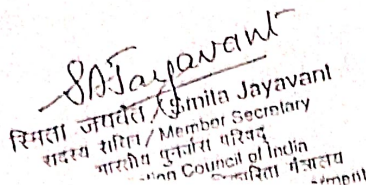 S.A. Jayavant
स्मिता जयवंत / Smita Jayavant
सदस्य सचिव / Member Secretary
भारतीय पुनर्वास परिषद्
Council of India
मंत्रालय